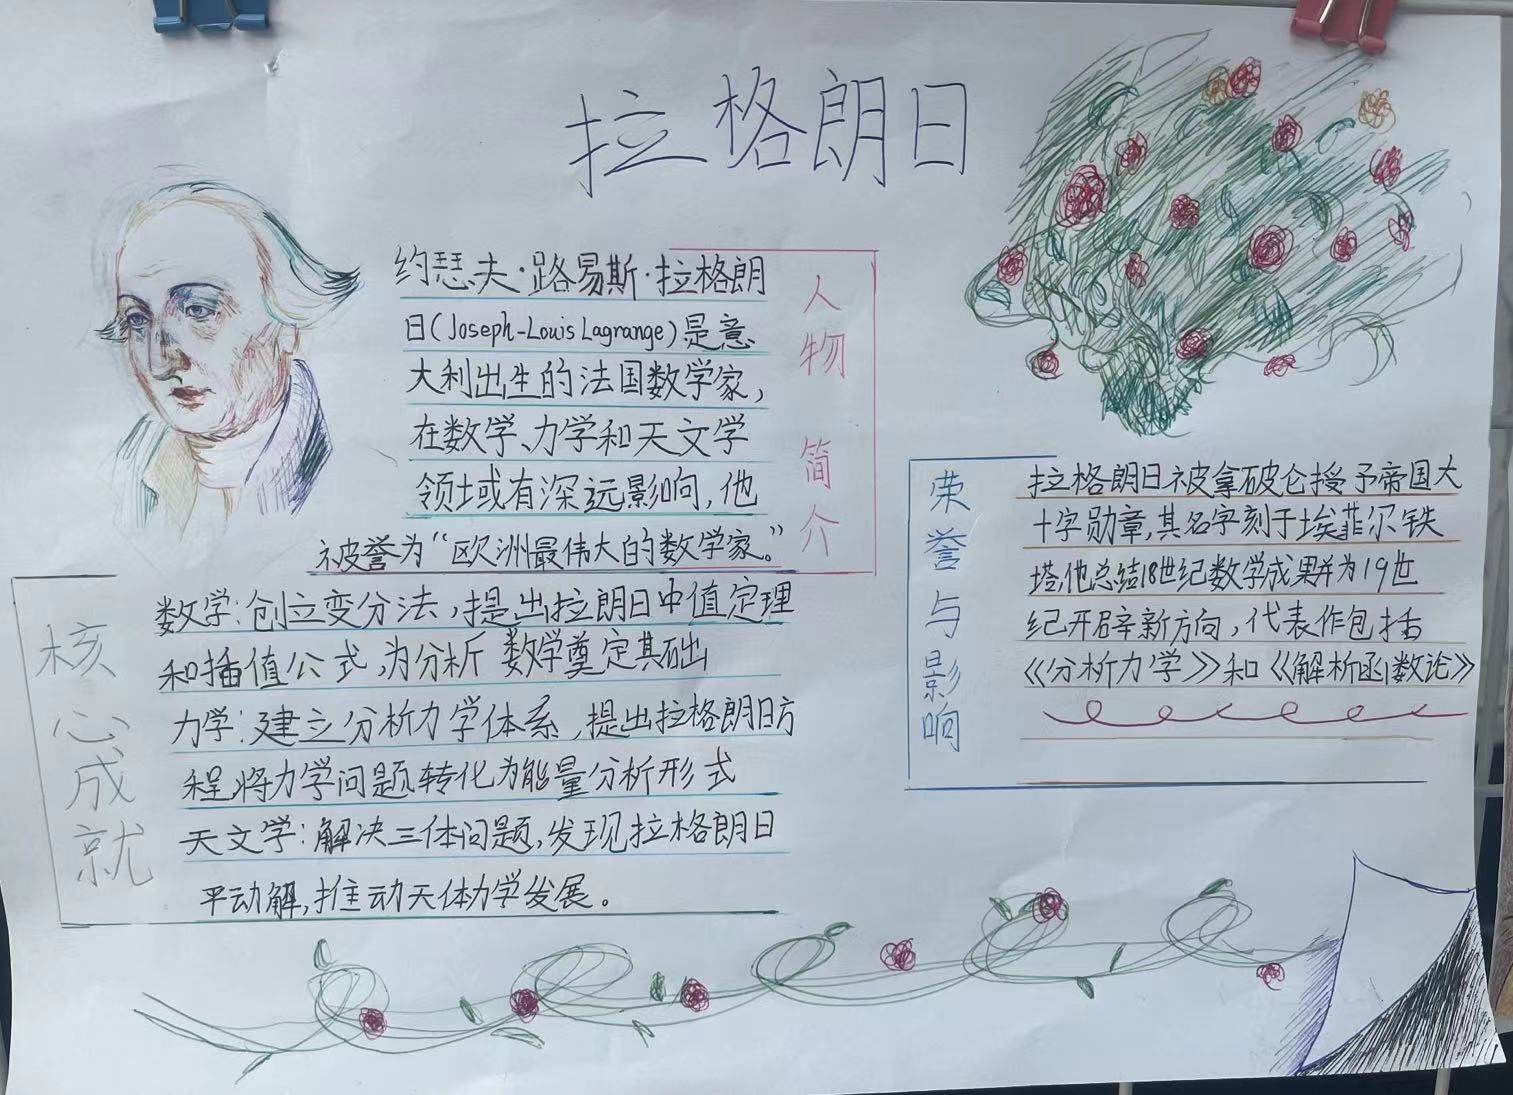 拉格朗日
人物简介
约瑟夫·路易斯·拉格朗
日(Joseph-Louis Lagrange)是意
大利出生的法国数学家，
在数学、力学和天文学
领域有深远影响，他
被誉为“欧洲最伟大的数学家。”
核心成就
数学：创立变分法，提出拉朗日中值定理
和插值公式，为分析数学奠定基础
力学：建立分析力学体系，提出拉格朗日方
程，将力学问题转化为能量分析形式
天文学：解决三体问题，发现拉格朗日
平动解，推动天体力学发展。
荣誉与影响
拉格朗日被拿破仑授予帝国大
十字勋章，其名字刻于埃菲尔铁
塔，他总结18世纪数学成果并为19世
纪开辟新方向，代表作包括
《分析力学》和《解析函数论》